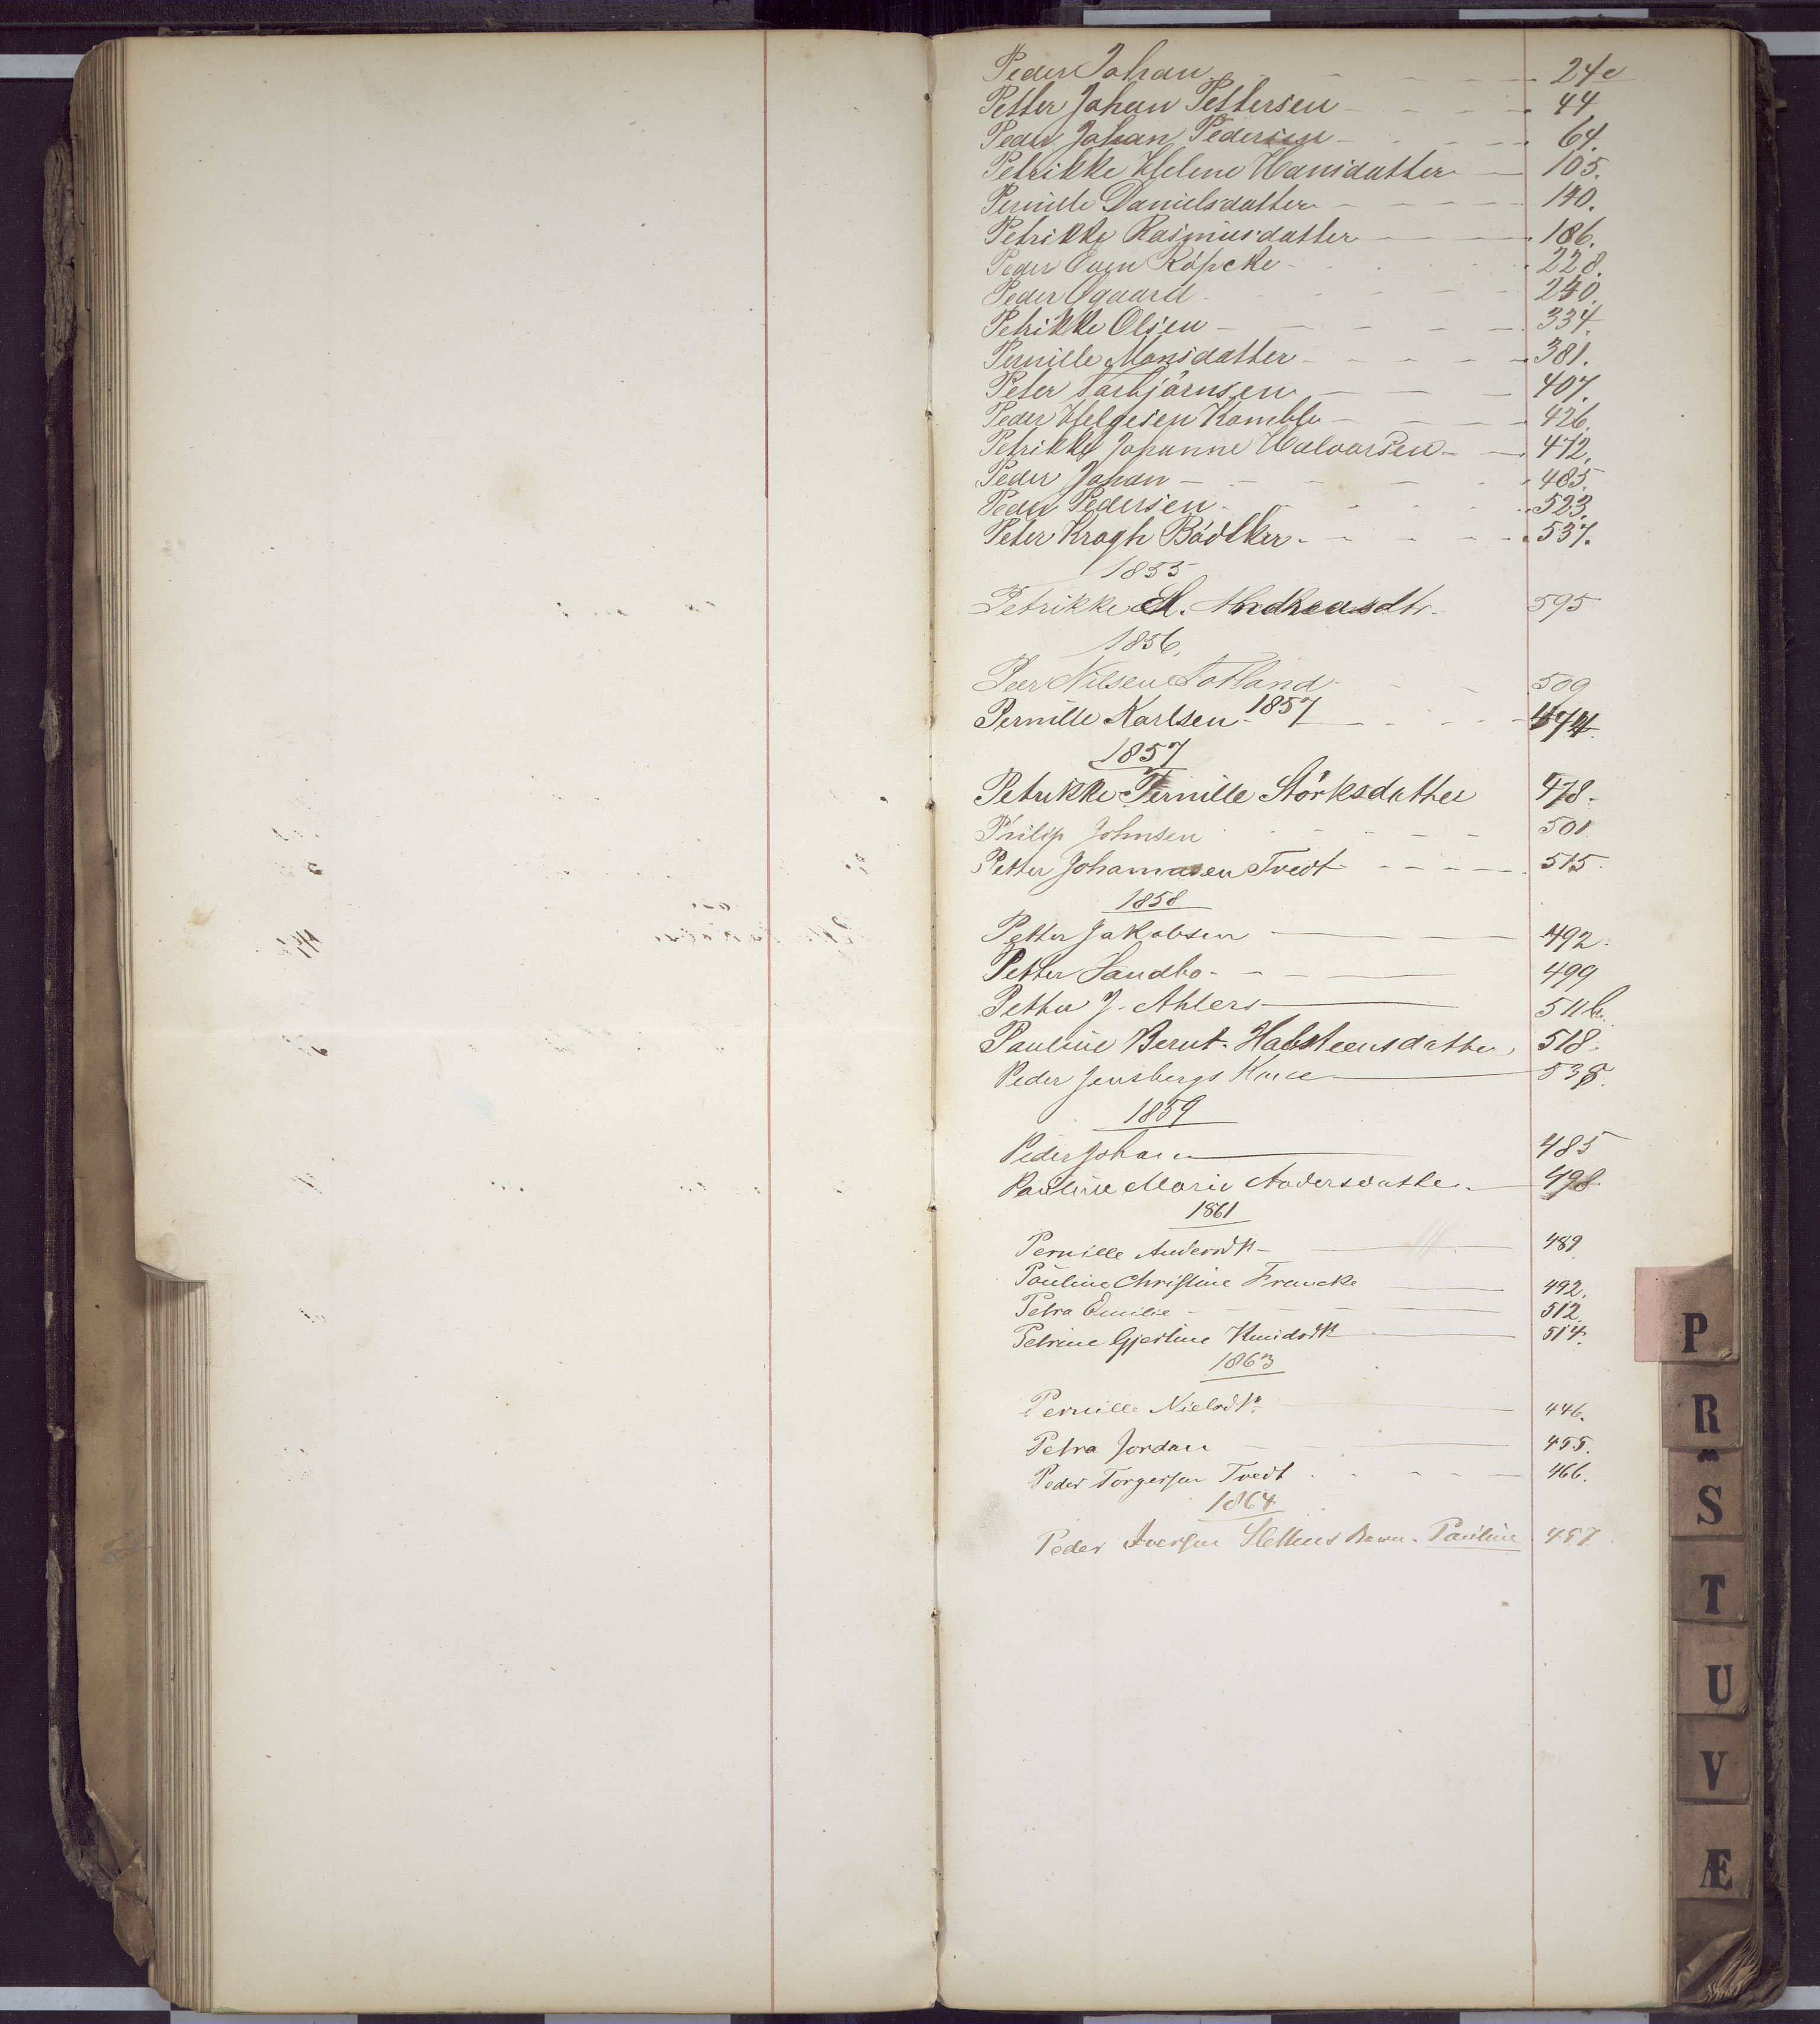 Peder Johan 24c
Petter Johan Pettersen 44
Peder Johan Pedersen 64.
Petrikke Helene Hansdatter 105.
Pernille Danielsdatter 140.
Petrikke Rasmusdatter 186.
Peder Even Röpcke 228.
Peder Ogaard 240.
Petrikke Olsen 334.
Pernille Monsdatter 381.
Peter Torbjörnsen 407.
Peder Helgesen Kambla 426.
Petrikke Johanne Halvorsen 472.
Peder Johan 485.
Peder Pedersen 523.
Peter Kragh Bödtker 537.
1855
Petrikke M. Andreasdtr. 595
1856.
Peer Nilsen Totland 509
Pernille Karlsen 1857 474.
1857
Petrikke Pernille Störksdatter 478.
Philip Johnsen 501
Petter Johannesen Tvedt 515.
1858
Petter Jakobsen 492.
Petter Sandbo 499
Petter J. Ahlers 511b.
Pauline Bernt. Halsteensdatter 518.
Peder Jensbergs Kone 538.
1859
Peder Johan 485
Pauline Marie Andersdatter 498.
1861
Pernille Andersdtr 489
Pauline Christine Francke 492.
Petra Emilie 512.
Petrine Gjertine Knudsdtr 514.
1863
Pernille Nielsdtr. 446.
Petra Jordan 455.
Peder Torgersen Tvedt 466.
1864
Peder Iversen Slettens Barn. Pauline 457.
P
R
S
T
U
V
Æ